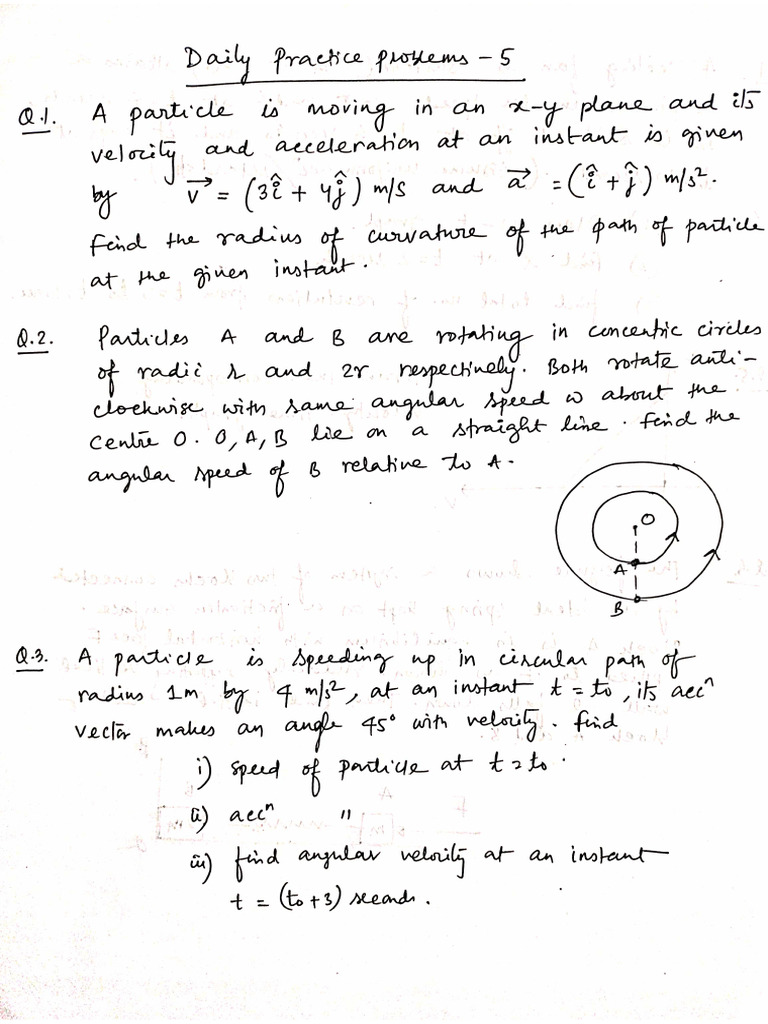 Daily Practice problems - 5
Q.1. A particle is moving in an x-y plane and its
velocity and acceleration at an instant is given
by v⃗ = (3î + 4ĵ) m/s and a⃗ = (î + ĵ) m/s².
Find the radius of curvature of the path of particle
at the given instant.
Q.2. Particles A and B are rotating in concentric circles
of radii r and 2r respectively. Both rotate anti-
clockwise with same angular speed ω about the
centre O. O, A, B lie on a straight line. Find the
angular speed of B relative to A.
O
A
B
Q.3. A particle is speeding up in circular path of
radius 1m by 4 m/s², at an instant t = to, its accⁿ
vector makes an angle 45° with velocity. Find
i) speed of particle at t = to.
ii) accⁿ "
iii) find angular velocity at an instant
t = (to + 3) seconds.